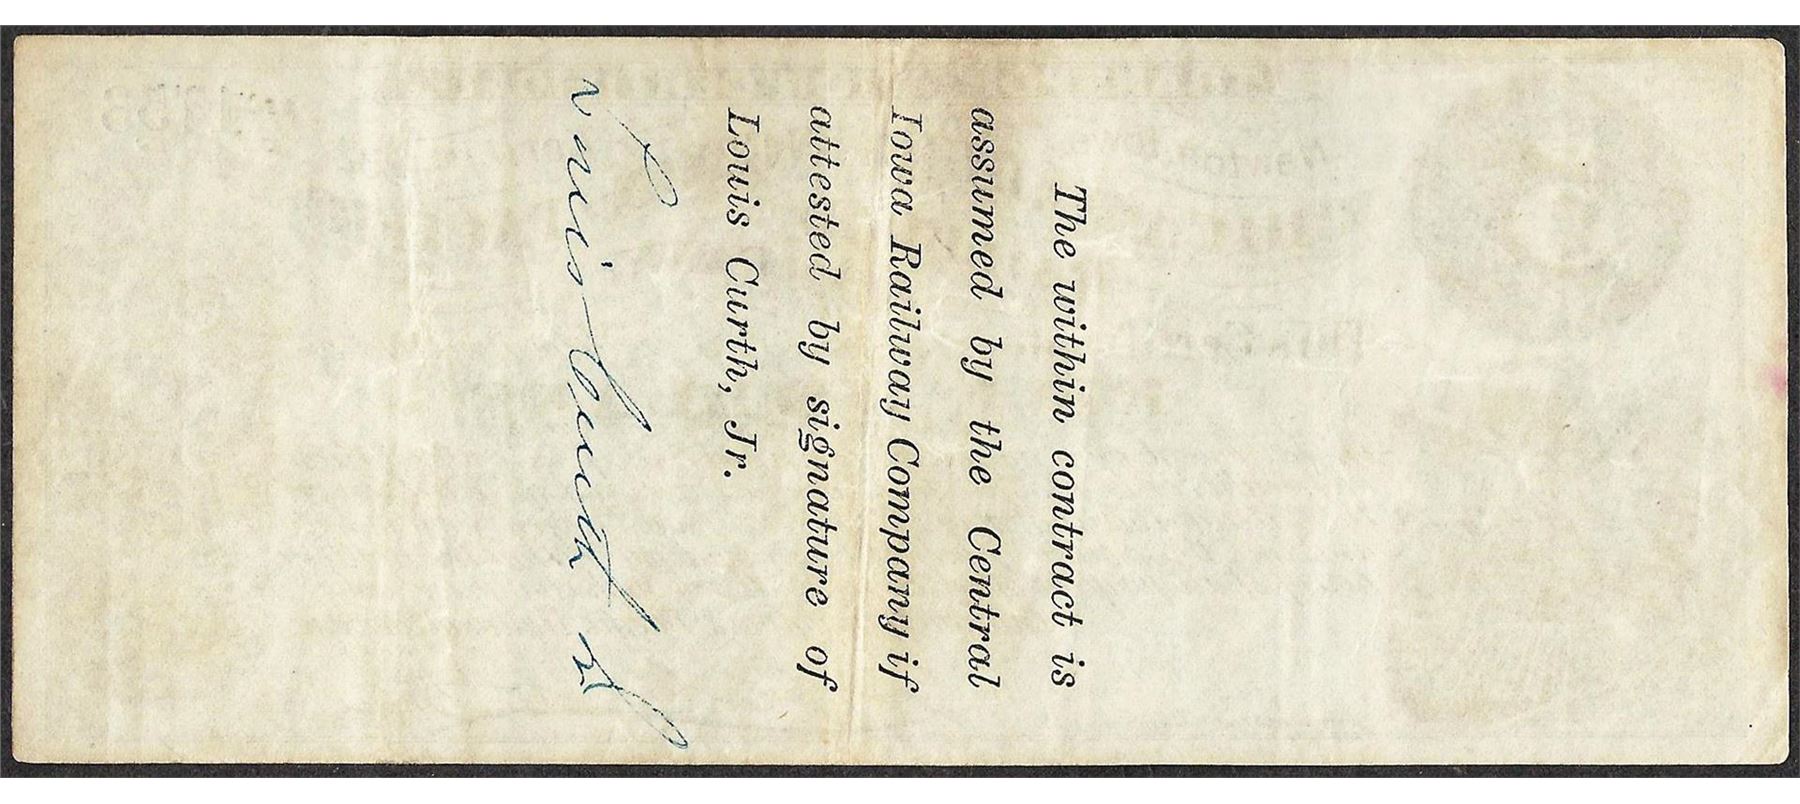 The within contract is
assumed by the Central
Iowa Railway Company if
attested by signature of
Louis Curth, Jr.
Louis Curth Jr